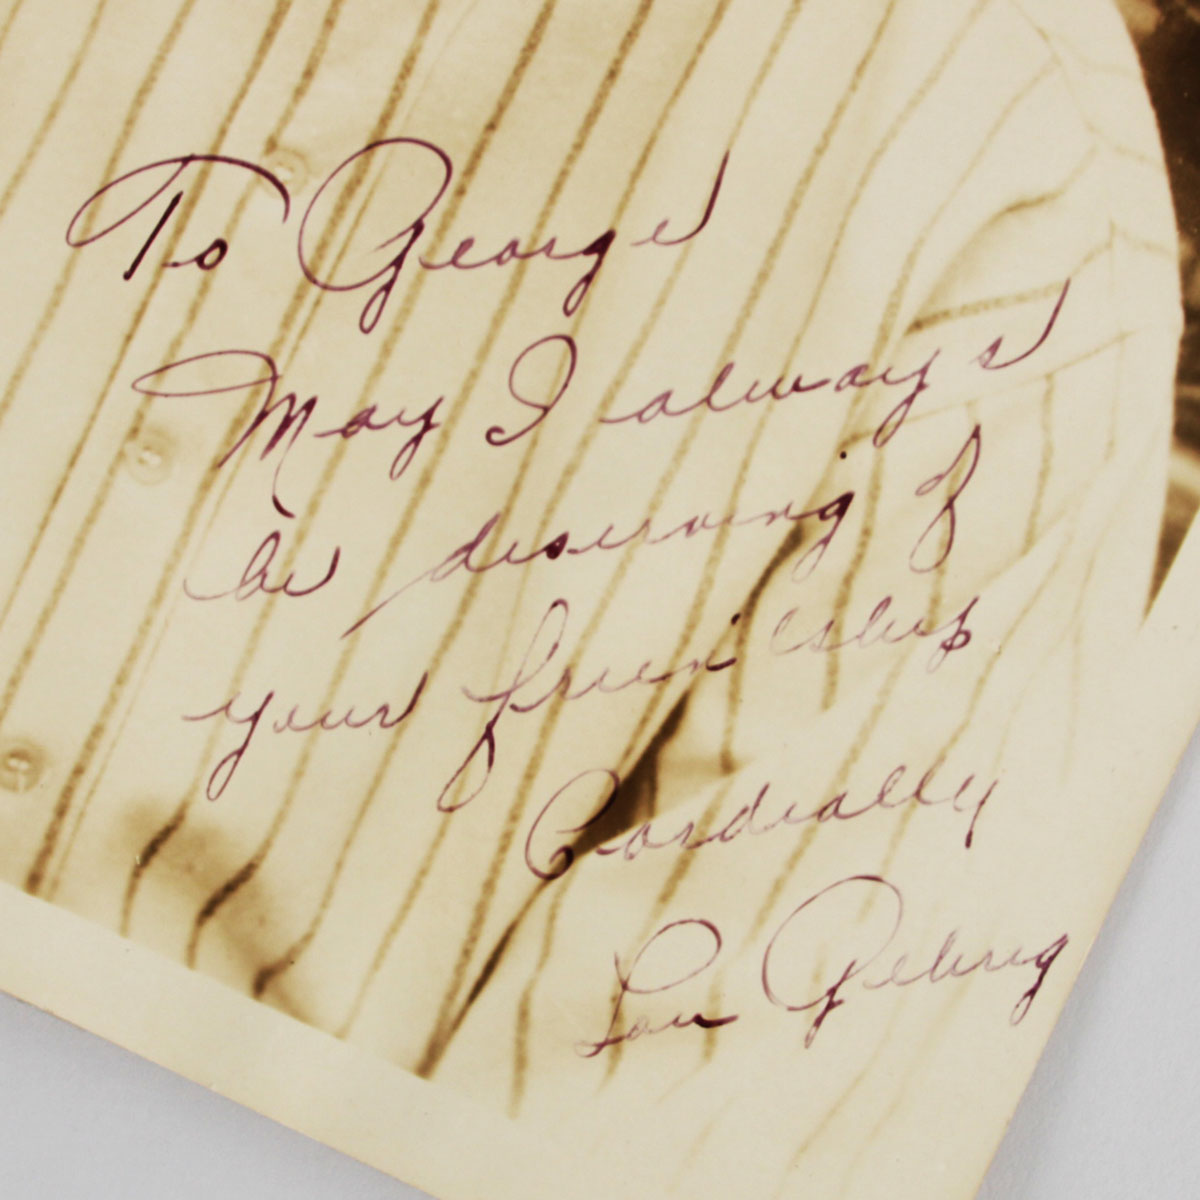 To George
May I always
be deserving of
your friendship
Cordially
Lou Gehrig